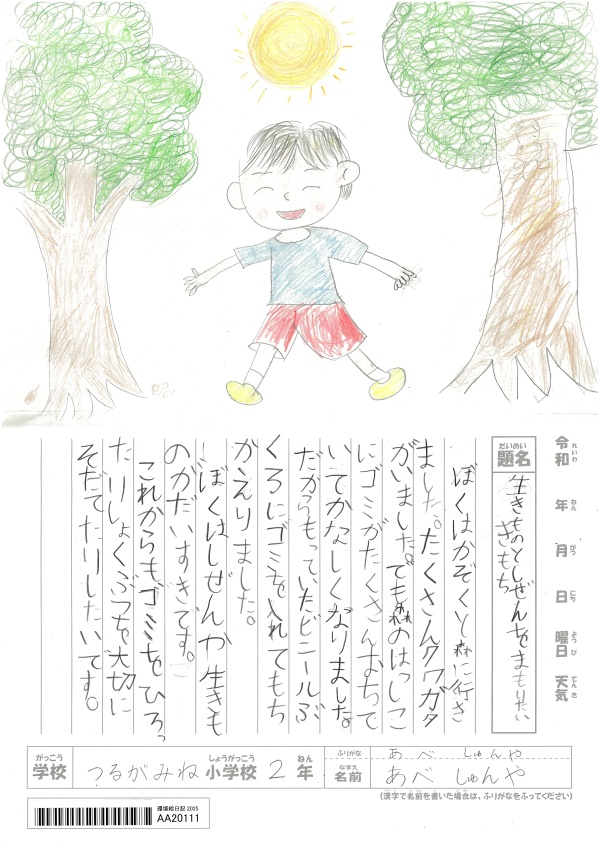 令和 年 月 日 曜日 天気
れいわ ねん がつ にち ようび てんき
だいめい
題名
生きものとしぜんをまもりたい
きもち
ぼくはかぞくと森に行き
ました。たくさんクワガタ
がいました。でも森のはしっこ
にゴミがたくさんおちて
いてかなしくなりました。
だからもっていたビニールぶ
くろにゴミを入れてもち
かえりました。
ぼくはしぜんや生きも
のがだいすきです。
これからもゴミをひろっ
たりしょくぶつを大切に
そだてたりしたいです。
がっこう
学校
つるがみね
しょうがっこう
小学校
2
ねん
年
ふりがな
あべ しゅんや
なまえ
名前
あべ しゅんや
(漢字で名前を書いた場合は、ふりがなをふってください)
環境絵日記 2025
AA20111